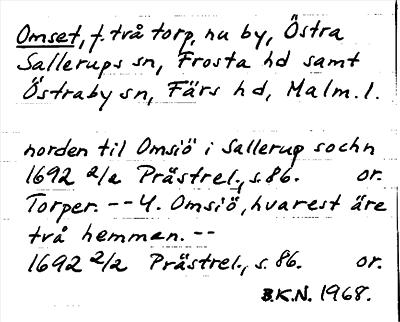 Omset, f. två torp, nu by, Östra
Sallerups sn, Frosta hd samt
Östraby sn, Färs hd, Malm. l.
norden til Omsiö i Sallerup sochn
1692 2/2 Prästrel., s. 86. or.
Torper. -- 4. Omsiö, hvarest äre
två hemman. --
1692 2/2 Prästrel., s. 86. or.
B.K.N. 1968.